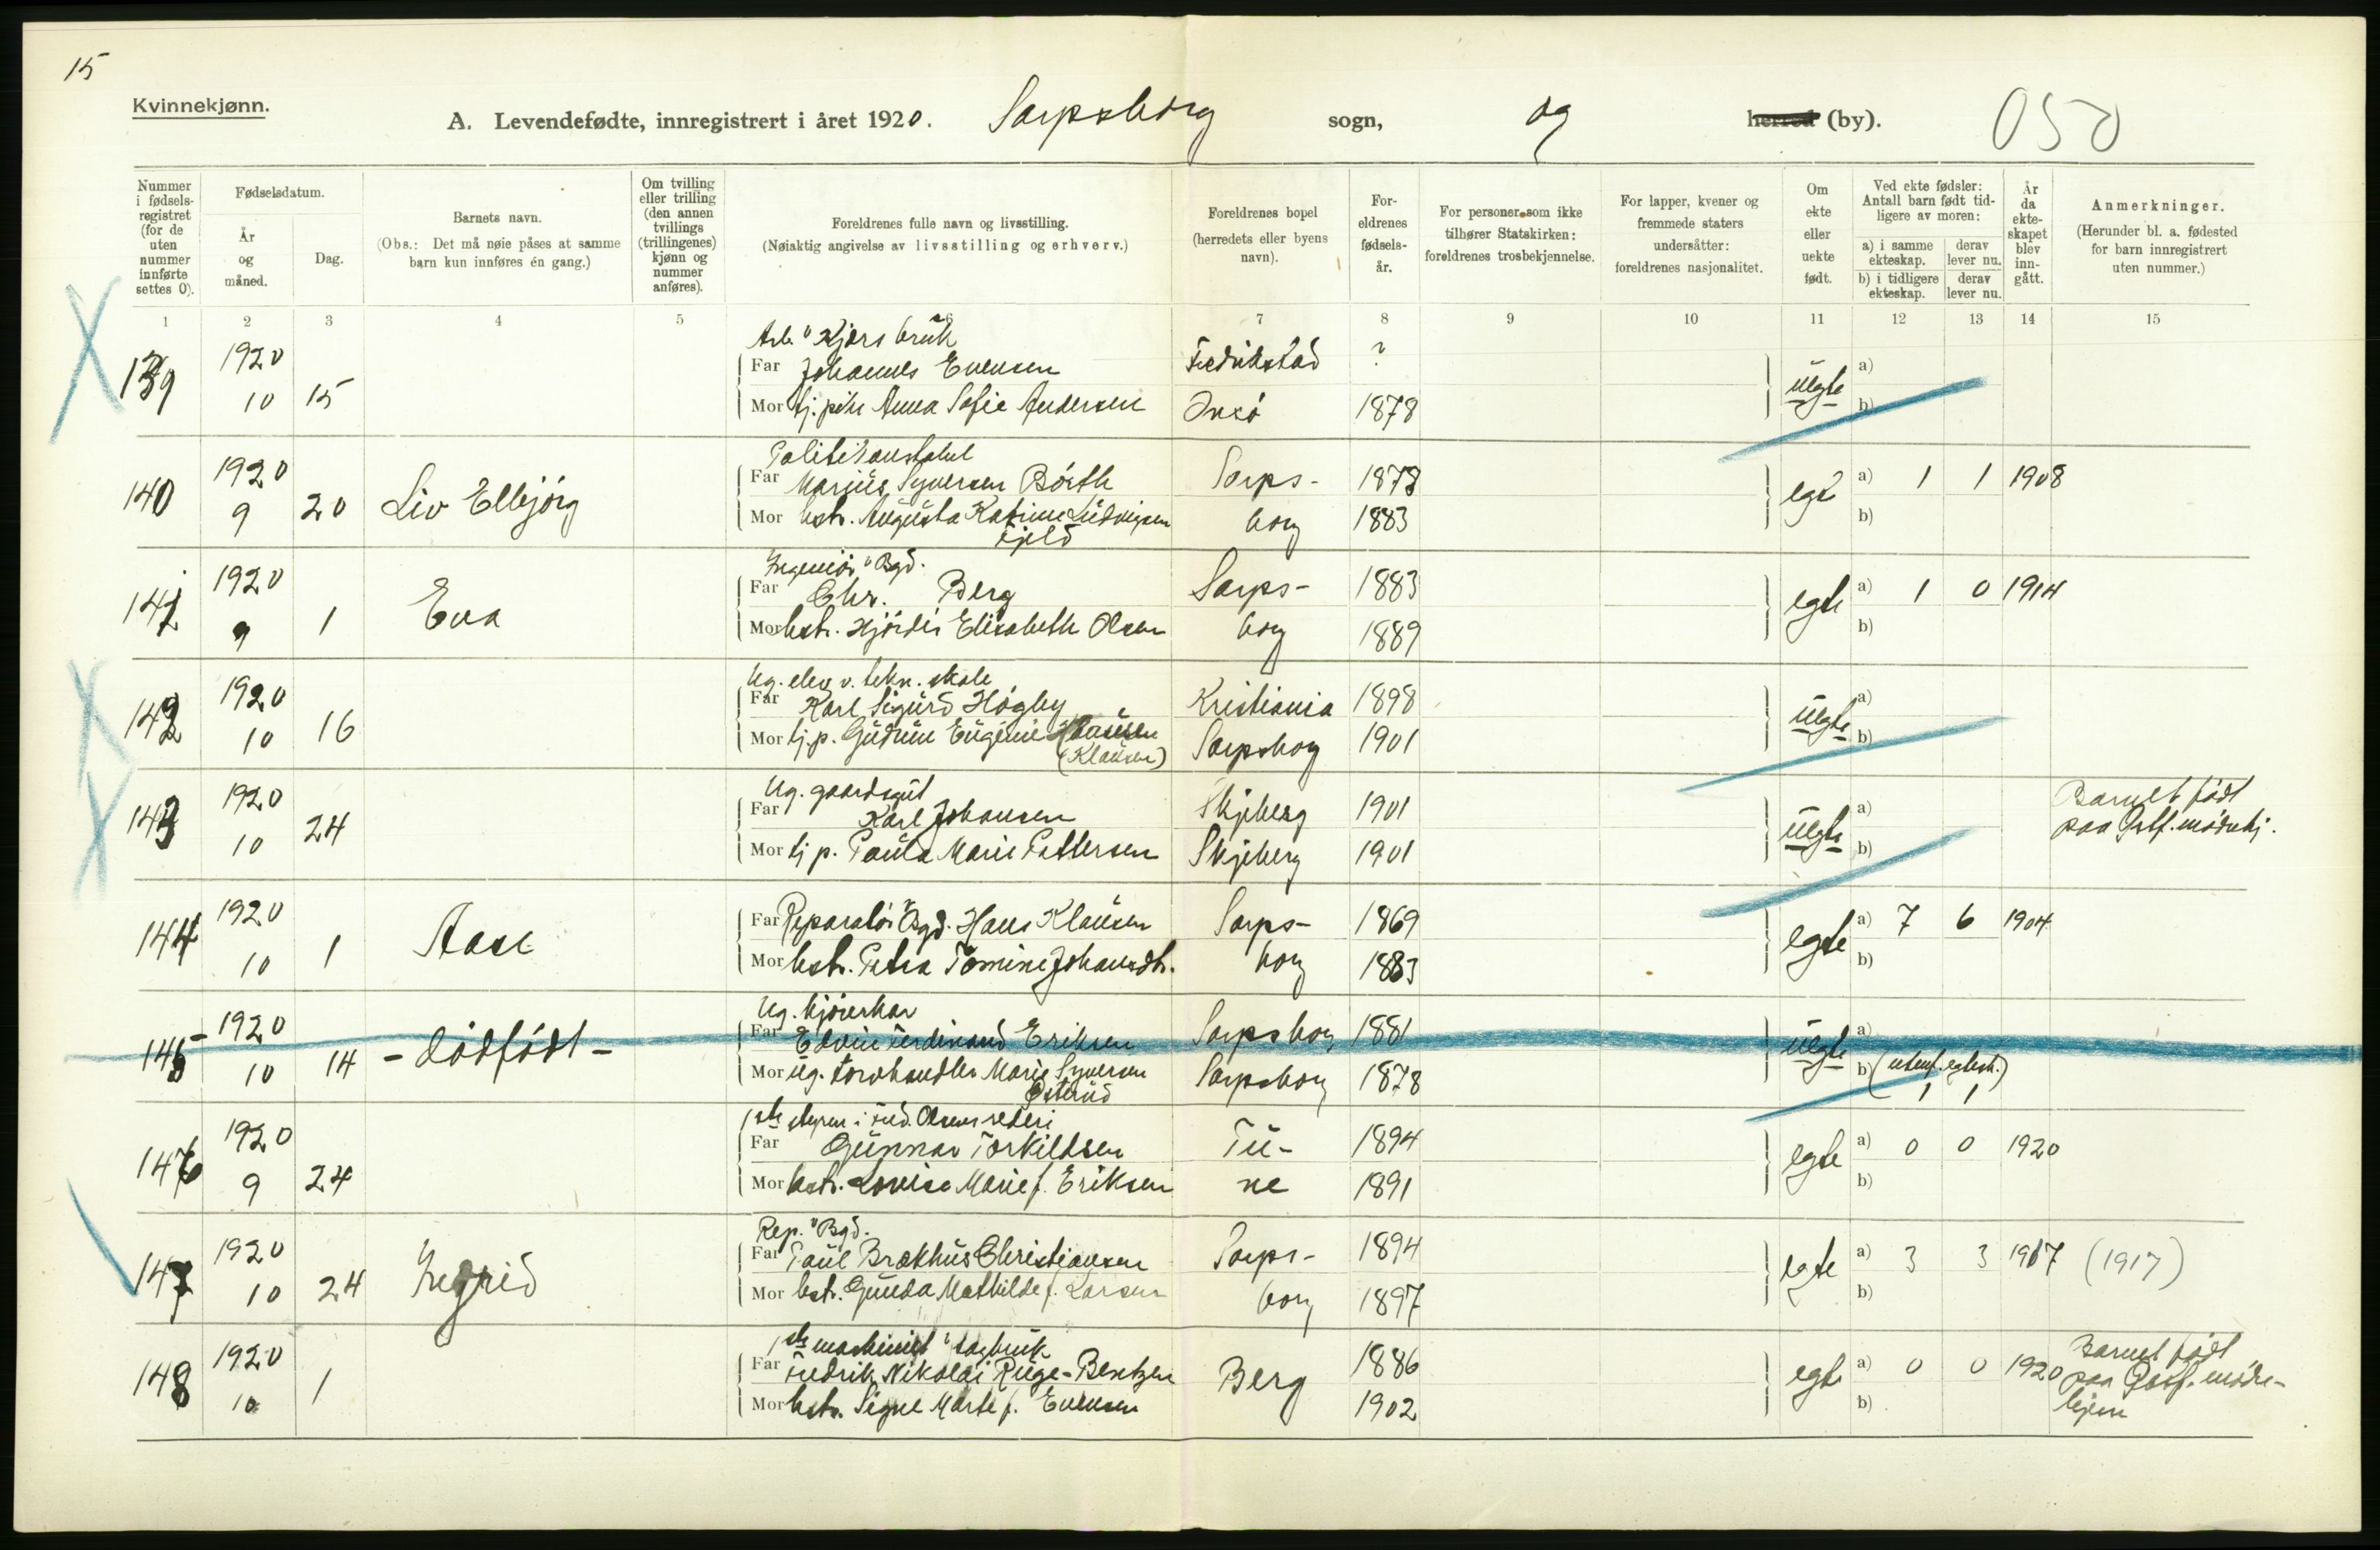 15
Kvinnekjønn.
A. Levendefødte, innregistrert i året 1920. Sarpsborg sogn, og herred (by). 050
Nummer i fødsels-registret (for de uten nummer innførte settes 0).
Fødselsdatum.
År og måned.
Dag.
Barnets navn.
(Obs.: Det må nøie påses at samme barn kun innføres én gang.)
Om tvilling eller trilling (den annen tvillings (trillingenes) kjønn og nummer anføres).
Foreldrenes fulle navn og livsstilling.
(Nøiaktig angivelse av livsstilling og erhverv.)
Foreldrenes bopel (herredets eller byens navn).
For-eldrenes fødsels-år.
For personer som ikke tilhører Statskirken: foreldrenes trosbekjennelse.
For lapper, kvener og fremmede staters undersåtter: foreldrenes nasjonalitet.
Om ekte eller uekte født.
Ved ekte fødsler: Antall barn født tid-ligere av moren:
a) i samme ekteskap. derav lever nu.
b) i tidligere ekteskap. derav lever nu.
År da ekte-skapet blev inn-gått.
Anmerkninger.
(Herunder bl. a. fødested for barn innregistrert uten nummer.)
1 2 3 4 5 6 7 8 9 10 11 12 13 14 15
Arb. v Kjærs bruk
139 1920 Far Johannes Evensen Fredrikstad ? uegte a)
10 15 Mor tj.pike Anna Sofie Andersen Onsö 1878 b)
Politikonstabel
140 1920 Far Marius Syversen Börth Sarps- 1878 egte a) 1 1 1908
9 20 Liv Ellbjörg Mor hstr. Augusta Katrine Ludvigsen borg 1883 b)
Kjeld
Ingeniör v Bgd.
141 1920 Far Chr. Berg Sarps- 1883 egte a) 1 0 1914
9 1 Eva Mor hstr. Hjördis Elisabeth Olsen borg 1889 b)
Ug. elev v. tekn. skole
142 1920 Far Karl Sigurd Högley Kristiania 1898 uegte a)
10 16 Mor tj.p. Gudrun Eugenie Clausen Sarpsborg 1901 b)
(Klausen)
Ug. gaardsgut
143 1920 Far Karl Johansen Skjeberg 1901 uegte a) Barnet födt
10 24 Mor tj p. Paula Marie Pettersen Skjeberg 1901 b) paa Østf. mödrehj.
144 1920 Far Reparatör v Bgd. Hans Klausen Sarps- 1869 egte a) 7 6 1904
10 1 Aase Mor hstr. Petra Tomine Johansdtr. borg 1883 b)
Ug. kjörekar
145 1920 Far Edvin Ferdinand Eriksen Sarpsborg 1881 uegte a)
10 14 - dödfödt - Mor ug. torvhandler Marie Syversen Sarpsborg 1878 b) (utenf. egtesk.)
Österud 1 1
1ste styrm. i Fred. Olsens rederi
146 1920 Far Gunnar Torkildsen Tu- 1894 egte a) 0 0 1920
9 24 Mor hstr. Lovise Marie f. Eriksen ne 1891 b)
Rep. v Bgd.
147 1920 Far Paul Brækhus Christiansen Sarps- 1894 egte a) 3 3 1917 (1917)
10 24 Ingrid Mor hstr. Gunda Mathilde f. Larsen borg 1897 b)
1ste maskinist v sagbruk
148 1920 Far Fredrik Nikolai Ruge-Bentzen Berg 1886 egte a) 0 0 1920 Barnet födt
10 1 Mor hstr. Signe Marte f. Evensen 1902 b) paa Østf. mödre-
hjem